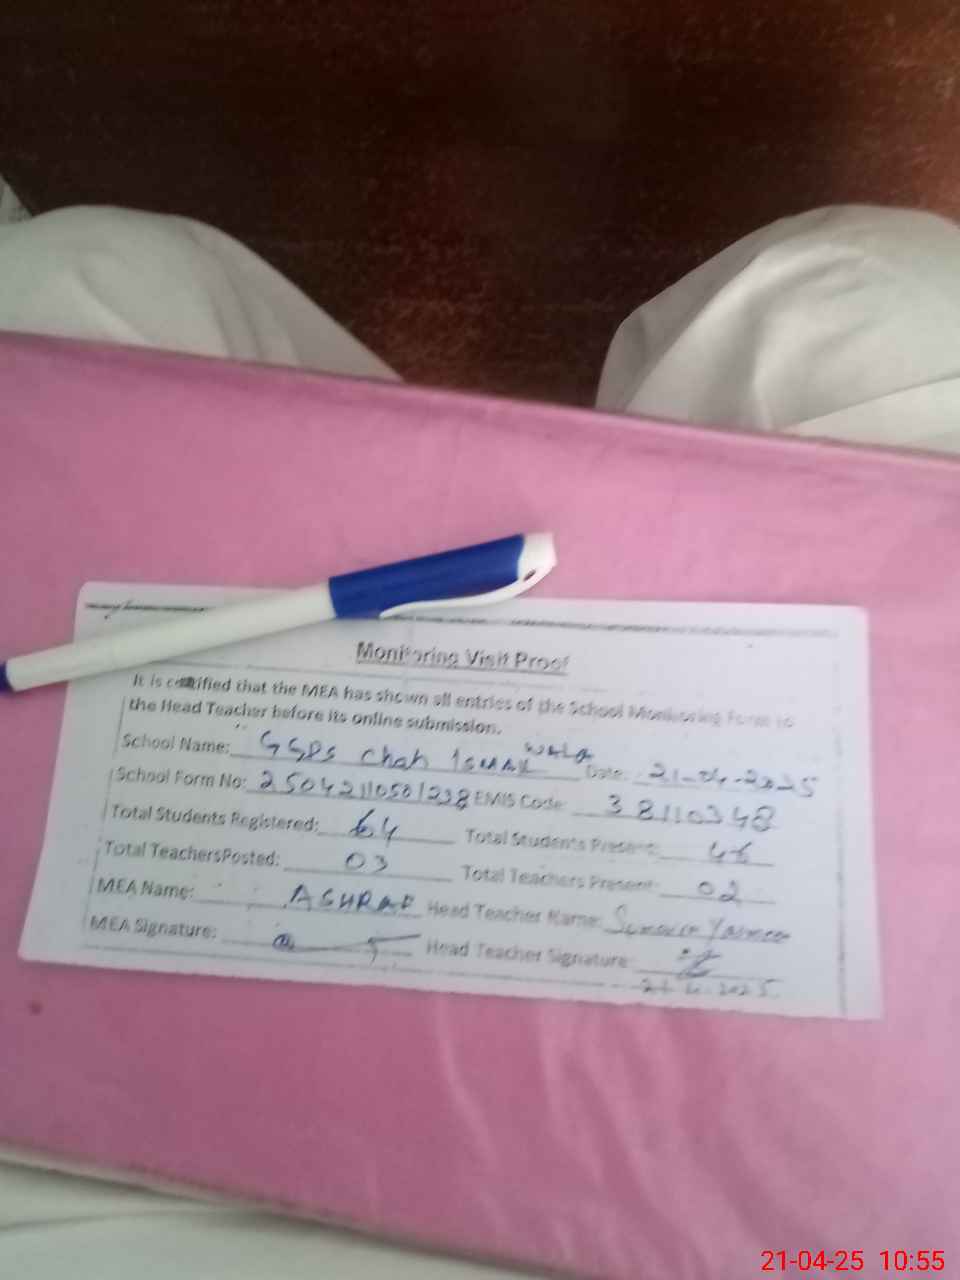 Monitoring Visit Proof
It is certified that the MEA has shown all entries of the School Monitoring Form to
the Head Teacher before its online submission.
School Name: GGPS Chah Ismail WALA Date: 21-04-2025
School Form No: 2504211050 1238 EMIS Code: 38110348
Total Students Registered: 64 Total Students Present: 46
Total TeachersPosted: 03 Total Teachers Present: 02
MEA Name: ASHRAF Head Teacher Name: Yasmeen
MEA Signature: Head Teacher Signature:
21-4-2025
21-04-25 10:55